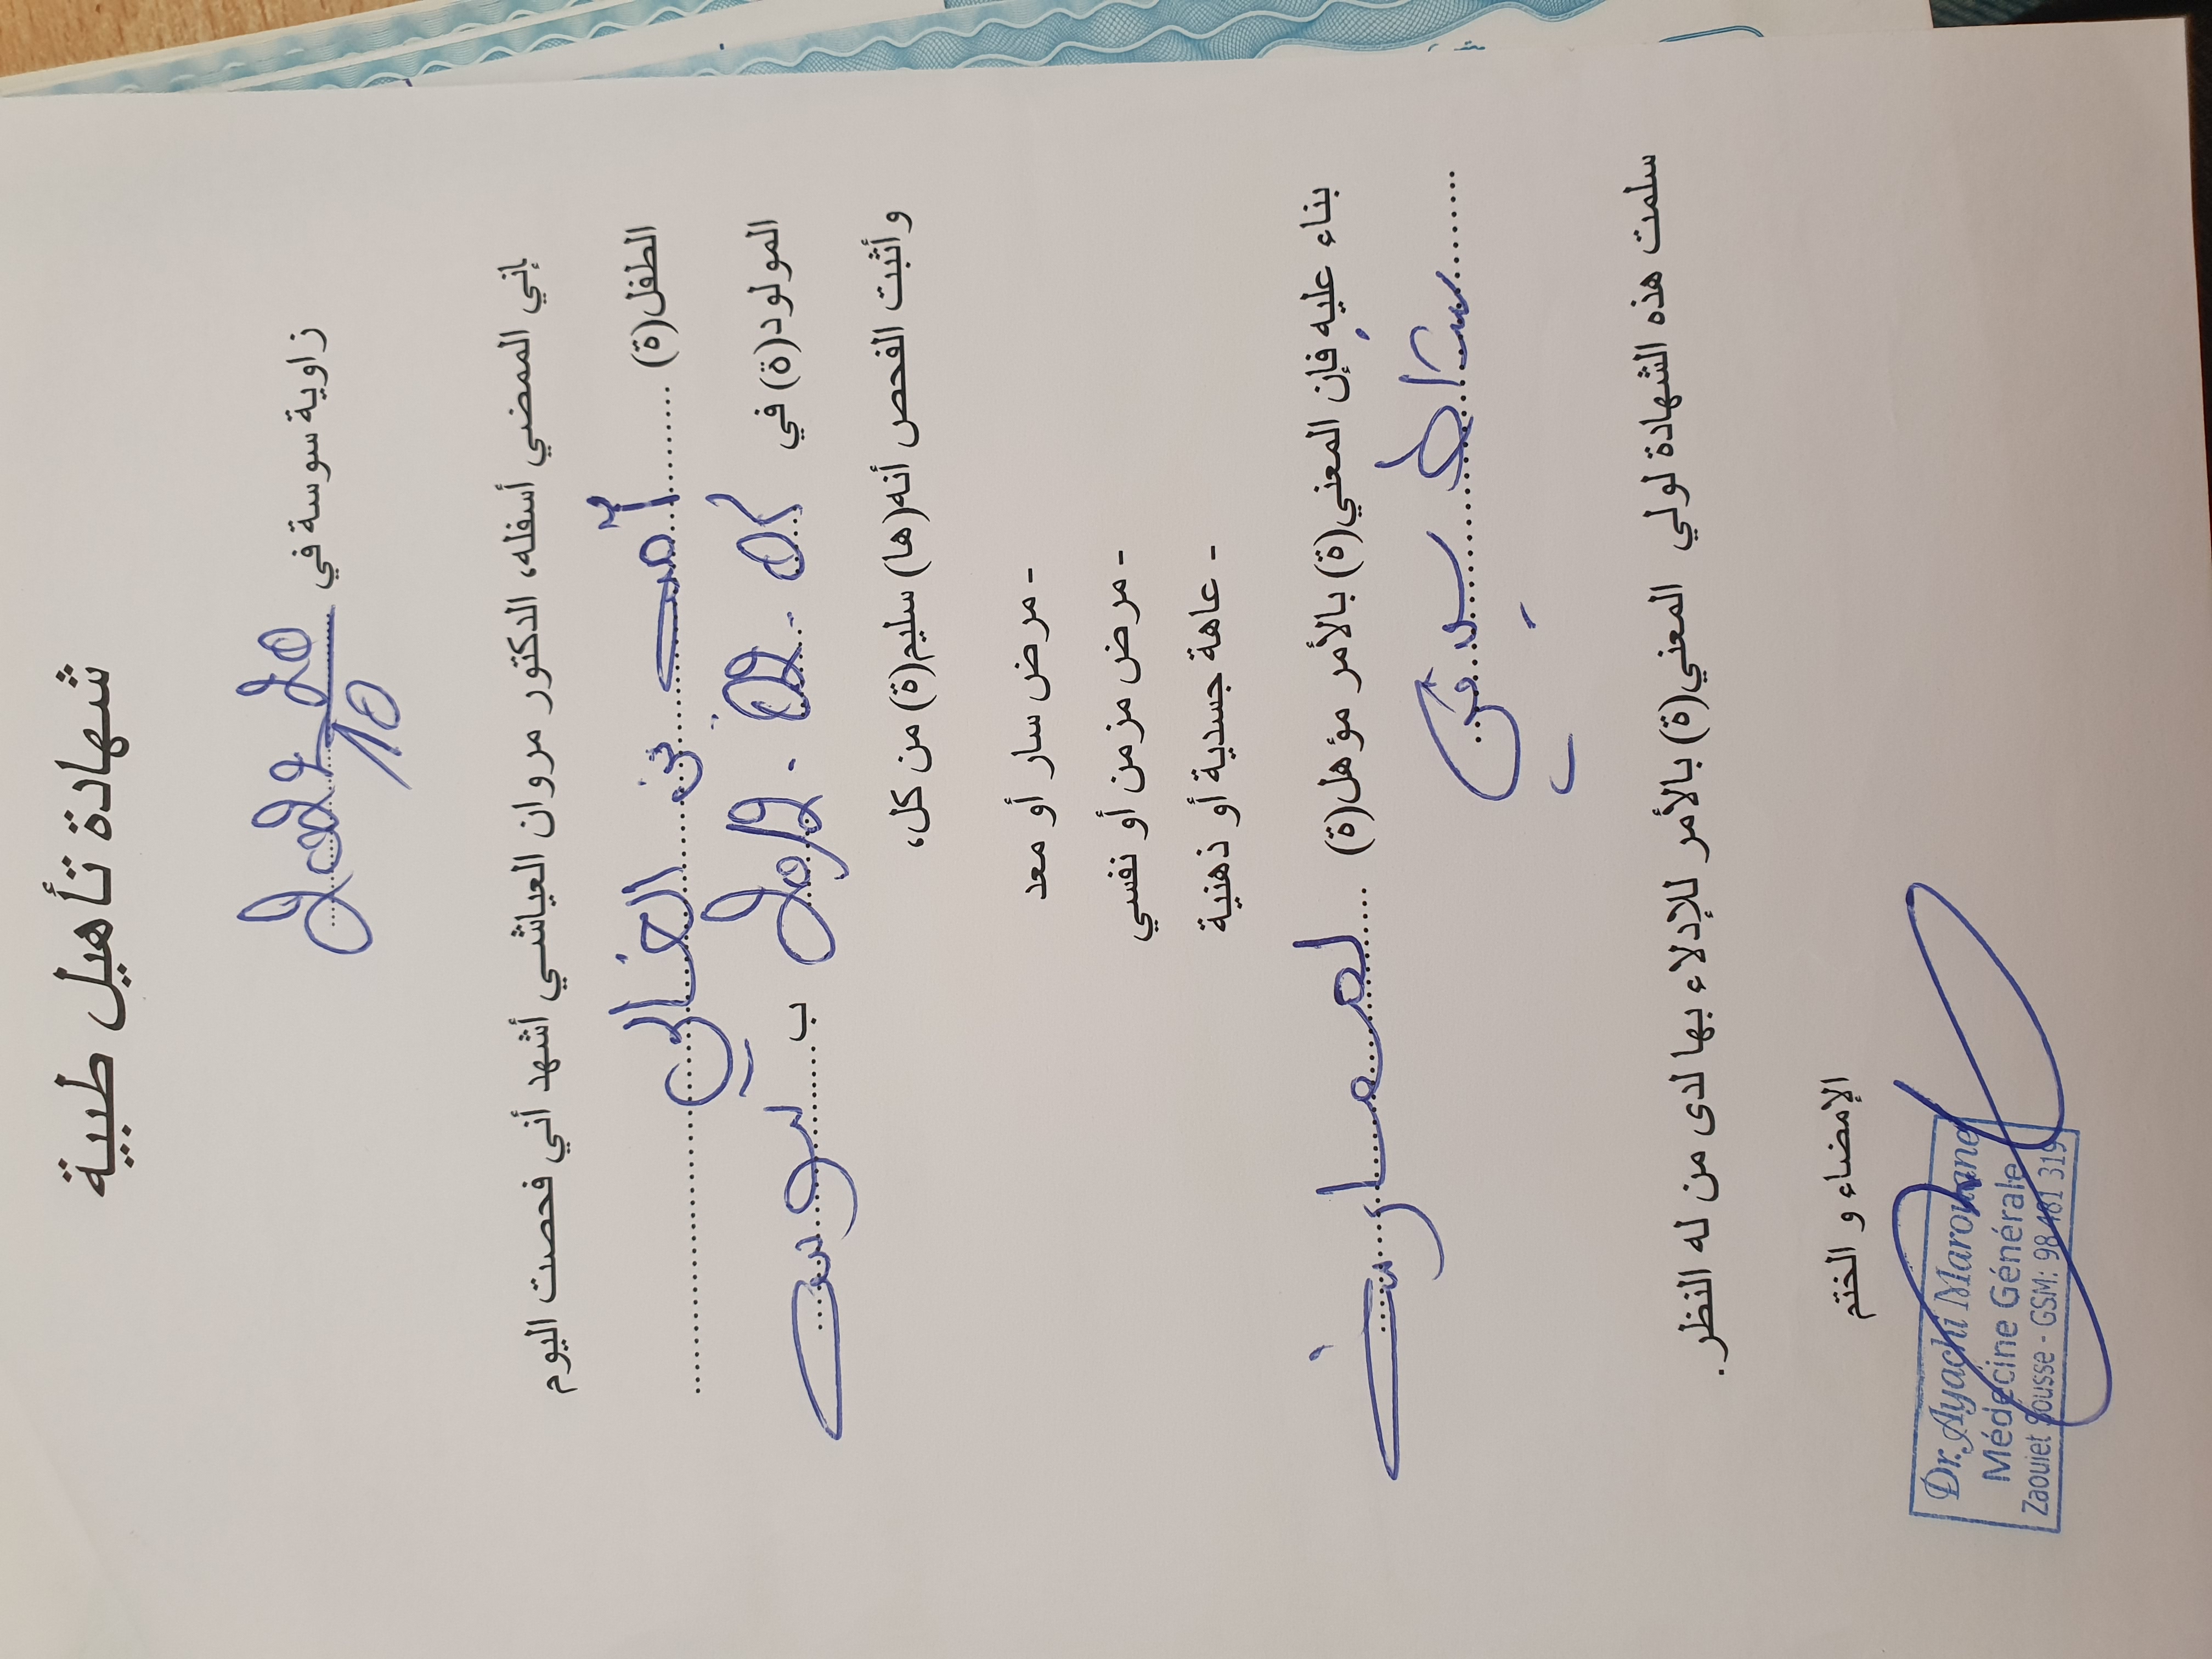 شهادة تأهيل طبية
زاوية سوسة في 2022 20/10
إني الممضي أسفله، الدكتور مروان العياشي أشهد أني فحصت اليوم
الطفل(ة) بن الغالي
المولود(ة) في 2012 . 02 . ب سوسة
وأثبت الفحص أنه(ها) سليم(ة) من كل،
- مرض سار أو معد
- مرض مزمن أو نفسي
- عاهة جسدية أو ذهنية
بناء عليه فإن المعني(ة) بالأمر مؤهل(ة) لممارسة
نشاط بدني
سلمت هذه الشهادة لولي المعني(ة) بالأمر للإدلاء بها لدى من له النظر.
الإمضاء و الختم
Dr. Ayachi Marouane
Médecine Générale
Zaouiet Sousse - GSM: 98 481 319